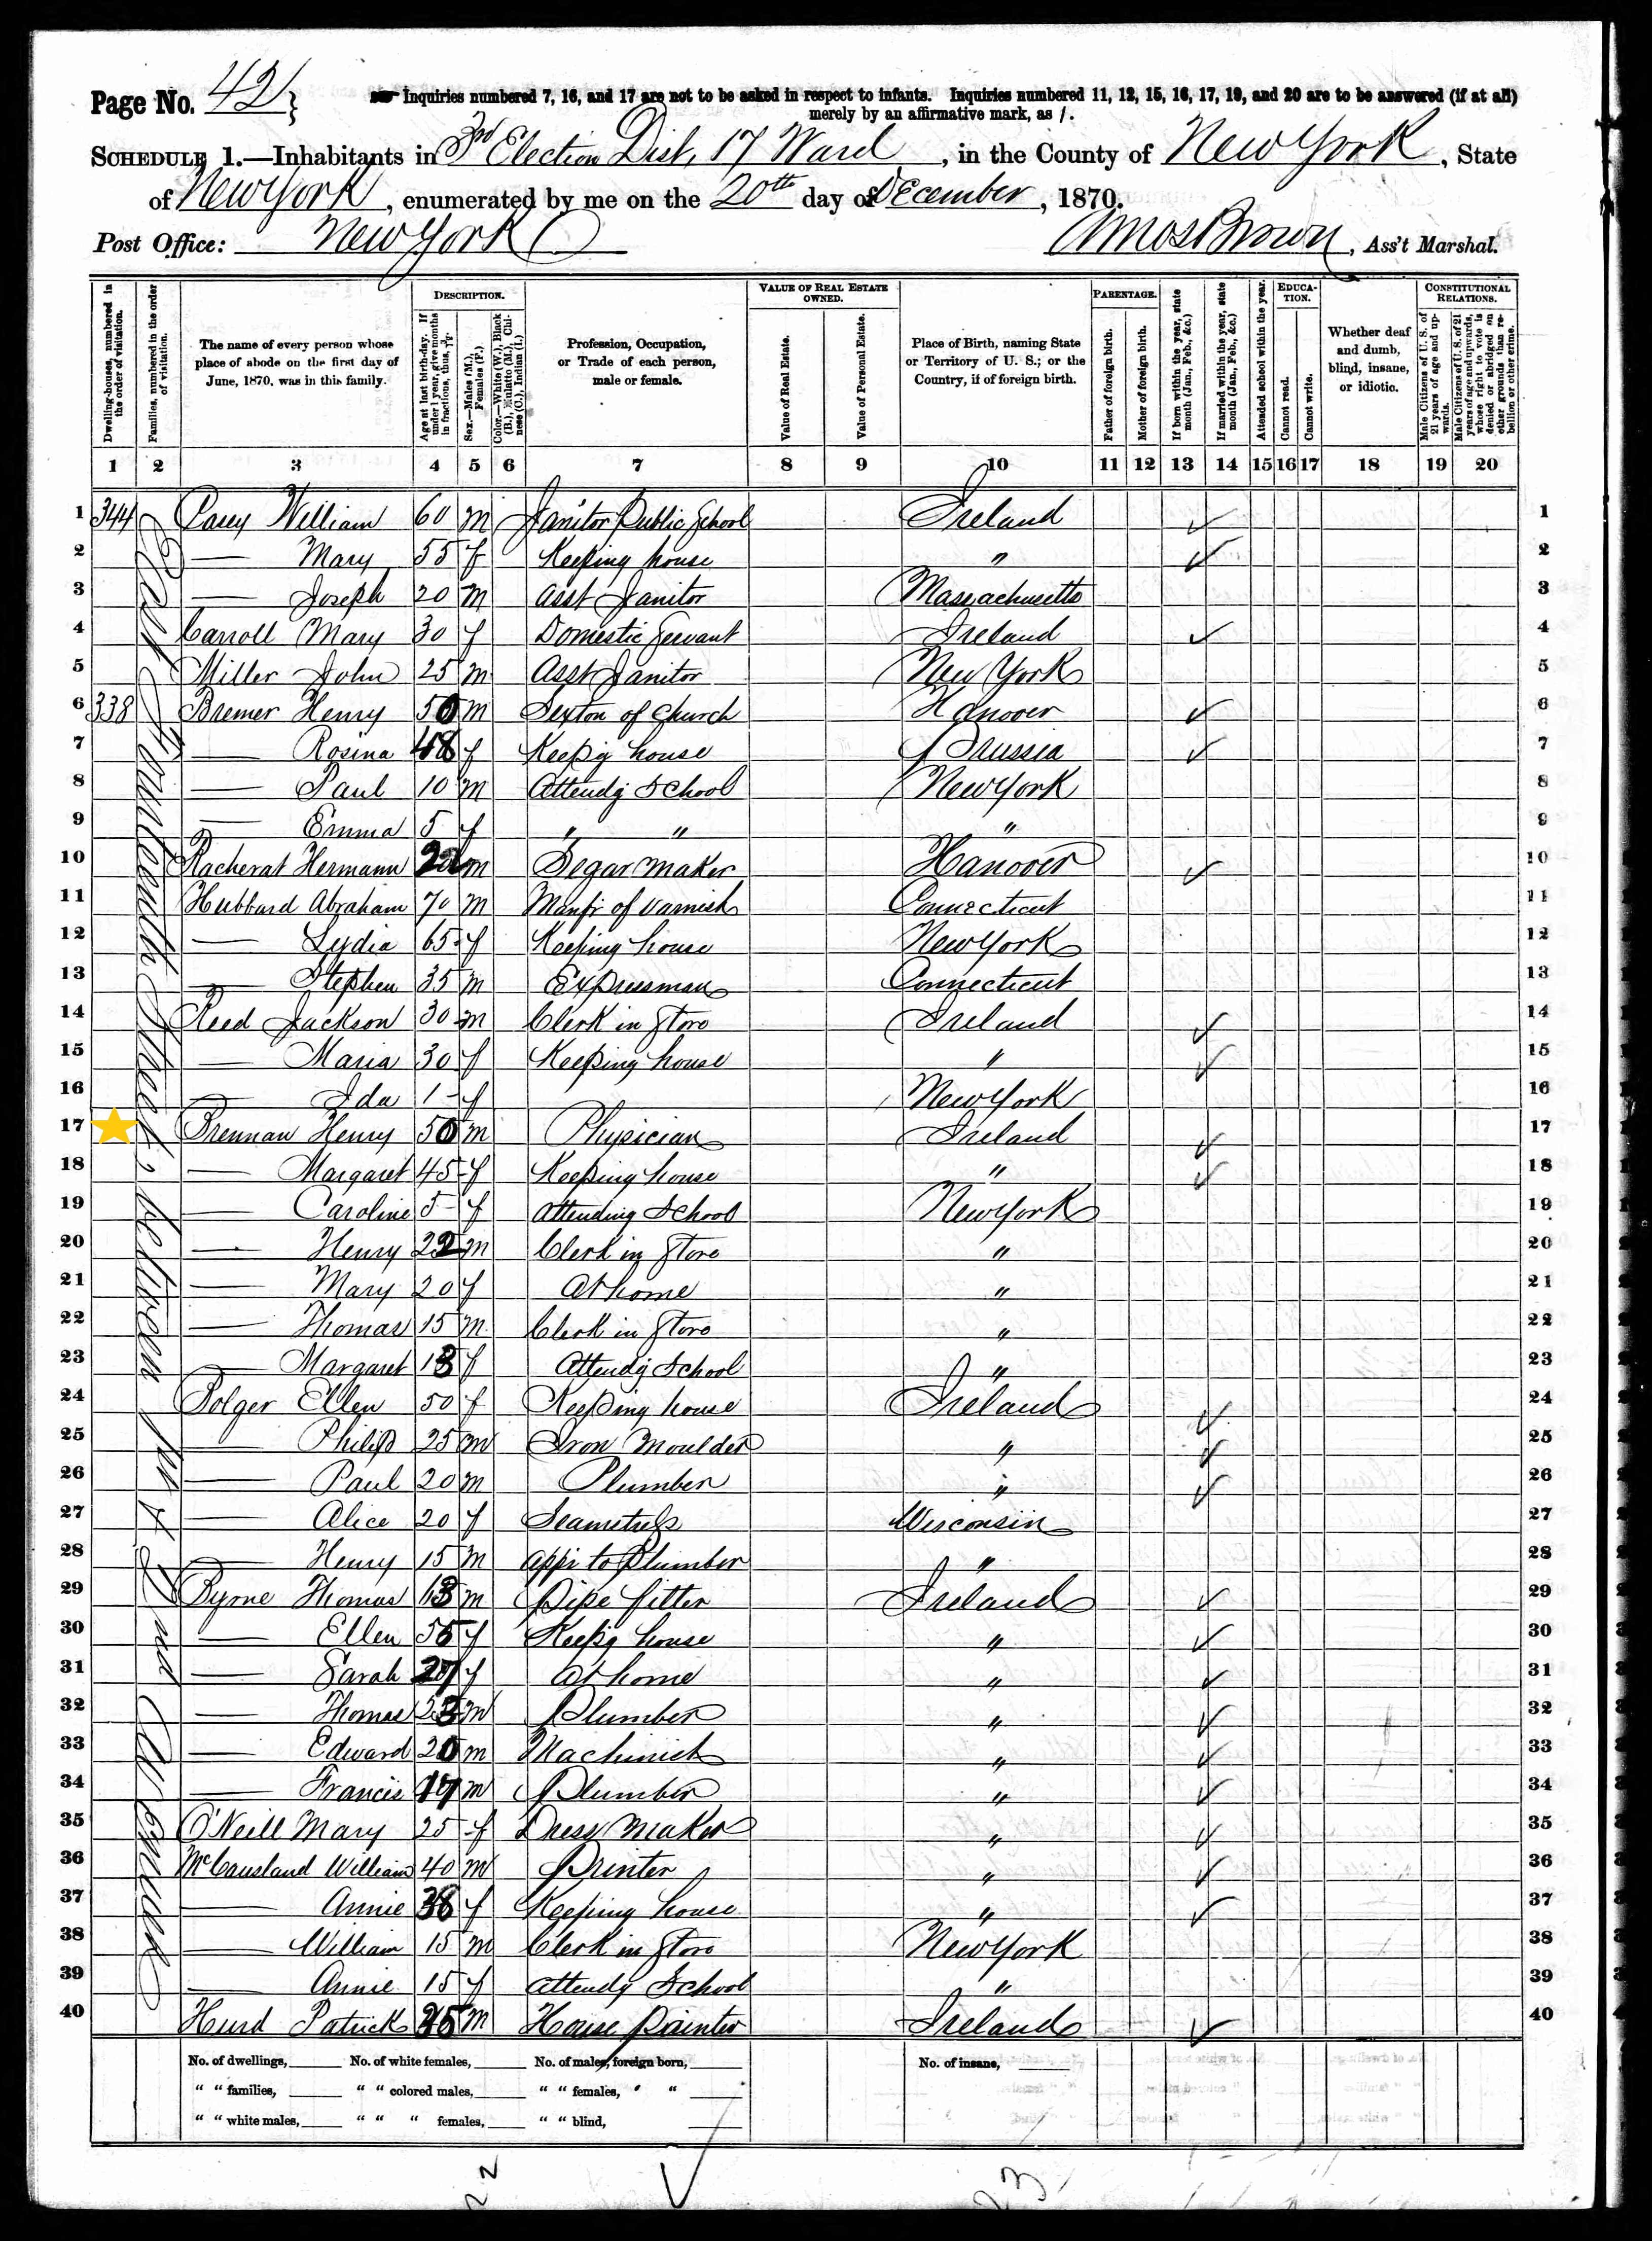 Page No. 42
Inquiries numbered 7, 16, and 17 are not to be asked in respect to infants. Inquiries numbered 11, 12, 15, 16, 17, 19, and 20 are to be answered (if at all)
merely by an affirmative mark, as /.
SCHEDULE 1.—Inhabitants in 3rd Election Dist, 17 Ward, in the County of New York, State
of New York, enumerated by me on the 20th day of December, 1870.
Post Office: New York
Amos Brown, Ass't Marshal.
Dwelling-houses, numbered in the order of visitation.
Families, numbered in the order of visitation.
The name of every person whose place of abode on the first day of June, 1870, was in this family.
DESCRIPTION.
Age at last birth-day. If under 1 year, give months in fractions, thus, 3/12.
Sex.—Males (M.), Females (F.).
Color.—White (W.), Black (B.), Mulatto (M.), Chinese (C.), Indian (I.)
Profession, Occupation, or Trade of each person, male or female.
VALUE OF REAL ESTATE OWNED.
Value of Real Estate.
Value of Personal Estate.
Place of Birth, naming State or Territory of U. S.; or the Country, if of foreign birth.
PARENTAGE.
Father of foreign birth.
Mother of foreign birth.
If born within the year, state month (Jan., Feb., &c.)
If married within the year, state month (Jan., Feb., &c.)
Attended school within the year.
EDUCATION.
Cannot read.
Cannot write.
Whether deaf and dumb, blind, insane, or idiotic.
CONSTITUTIONAL RELATIONS.
Male Citizens of U. S. of 21 years of age and upwards.
Male Citizens of U. S. of 21 years of age and upwards, whose right to vote is denied or abridged on other grounds than rebellion or other crime.
1 2 3 4 5 6 7 8 9 10 11 12 13 14 15 16 17 18 19 20
East Seventeenth Street, between 1st & 2nd Avenue
1 344 Casey William 60 m Janitor Public School Ireland ✓ 1
2 — Mary 55 f Keeping house " ✓ 2
3 — Joseph 20 m Asst Janitor Massachusetts 3
4 Carroll Mary 30 f Domestic Servant Ireland ✓ 4
5 Miller John 25 m Asst Janitor New York 5
6 338 Bremer Henry 50 m Sexton of Church Hanover ✓ 6
7 — Rosina 48 f Keepg house Prussia ✓ 7
8 — Paul 10 m Attendg School New York 8
9 — Emma 5 f " " " 9
10 Hermann m Segar maker Hanover ✓ 10
11 Hubbard Abraham 70 m Manfr of varnish Connecticut 11
12 — Lydia 65 f Keeping house New York 12
13 — Stephen 35 m Expressman Connecticut 13
14 Reed Jackson 30 m Clerk in Store Ireland ✓ 14
15 — Maria 30 f Keeping house " ✓ 15
16 — Ida 1 f New York 16
17 Brennan Henry 50 m Physician Ireland ✓ 17
18 — Margaret 45 f Keeping house " ✓ 18
19 — Caroline 5 f attending School New York 19
20 — Henry 22 m Clerk in Store " 20
21 — Mary 20 f At home " 21
22 — Thomas 15 m Clerk in Store " 22
23 — Margaret 13 f Attendg School " 23
24 Bolger Ellen 50 f Keeping house Ireland ✓ 24
25 — Philip 25 m Iron Moulder " ✓ 25
26 — Paul 20 m Plumber " ✓ 26
27 — Alice 20 f Seamstress Wisconsin 27
28 — Henry 15 m appr to Plumber " 28
29 Byrne Thomas m Pipe fitter Ireland ✓ 29
30 — Ellen 55 f Keepg house " ✓ 30
31 — Sarah 27 f at home " ✓ 31
32 — Thomas 23 m Plumber " ✓ 32
33 — Edward 20 m Machinist " ✓ 33
34 — Francis 17 m Plumber " ✓ 34
35 O'Neill Mary 25 f Dress Maker " ✓ 35
36 McCausland William 40 m Printer " ✓ 36
37 — Annie 38 f Keeping house " ✓ 37
38 — William 15 m Clerk in Store New York 38
39 — Annie 15 f attendg School " 39
40 Hurd Patrick 45 m House Painter Ireland ✓ 40
No. of dwellings, No. of white females, No. of males, foreign born, No. of insane,
" " families, " " colored males, " " females, " "
" " white males, " " " females, " " blind,
22 23